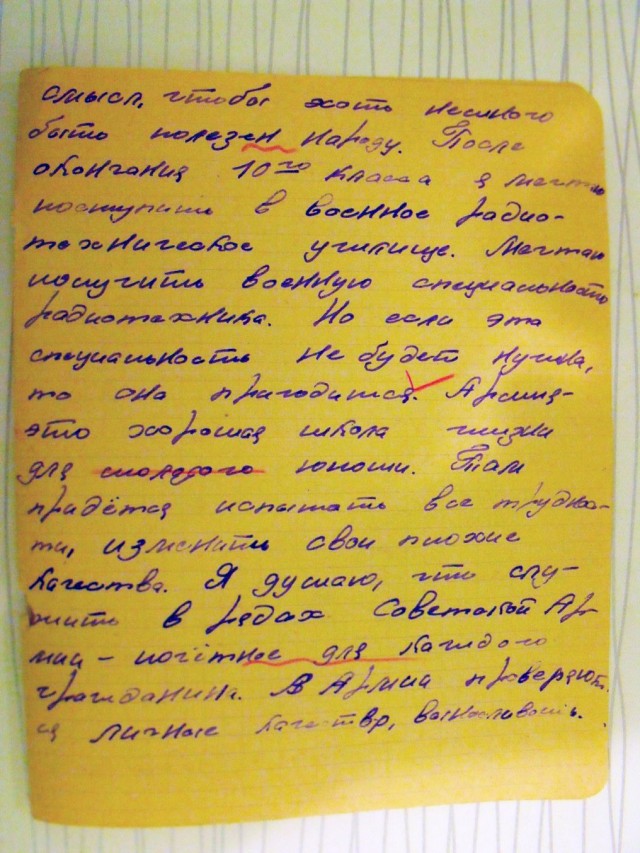 смысл, чтобы хоть немного
быть полезен народу. После
окончания 10го класса я мечтаю
поступить в военное радио-
техническое училище. Мечтаю
получить военную специальность
радиотехника. Но если эта
специальность не будет нужна,
то она пригодится. Армия-
это хорошая школа жизни
для молодого юноши. Там
придётся испытать все труднос-
ти, изменить свои плохие
качества. Я думаю, что слу-
жить в рядах Советской Ар-
мии - почётное для каждого
гражданина. В Армии проверяют-
ся личные качества, выносливость.